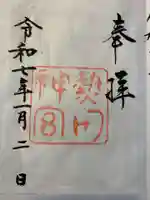 奉拝
熱田神宮
令和七年一月二日